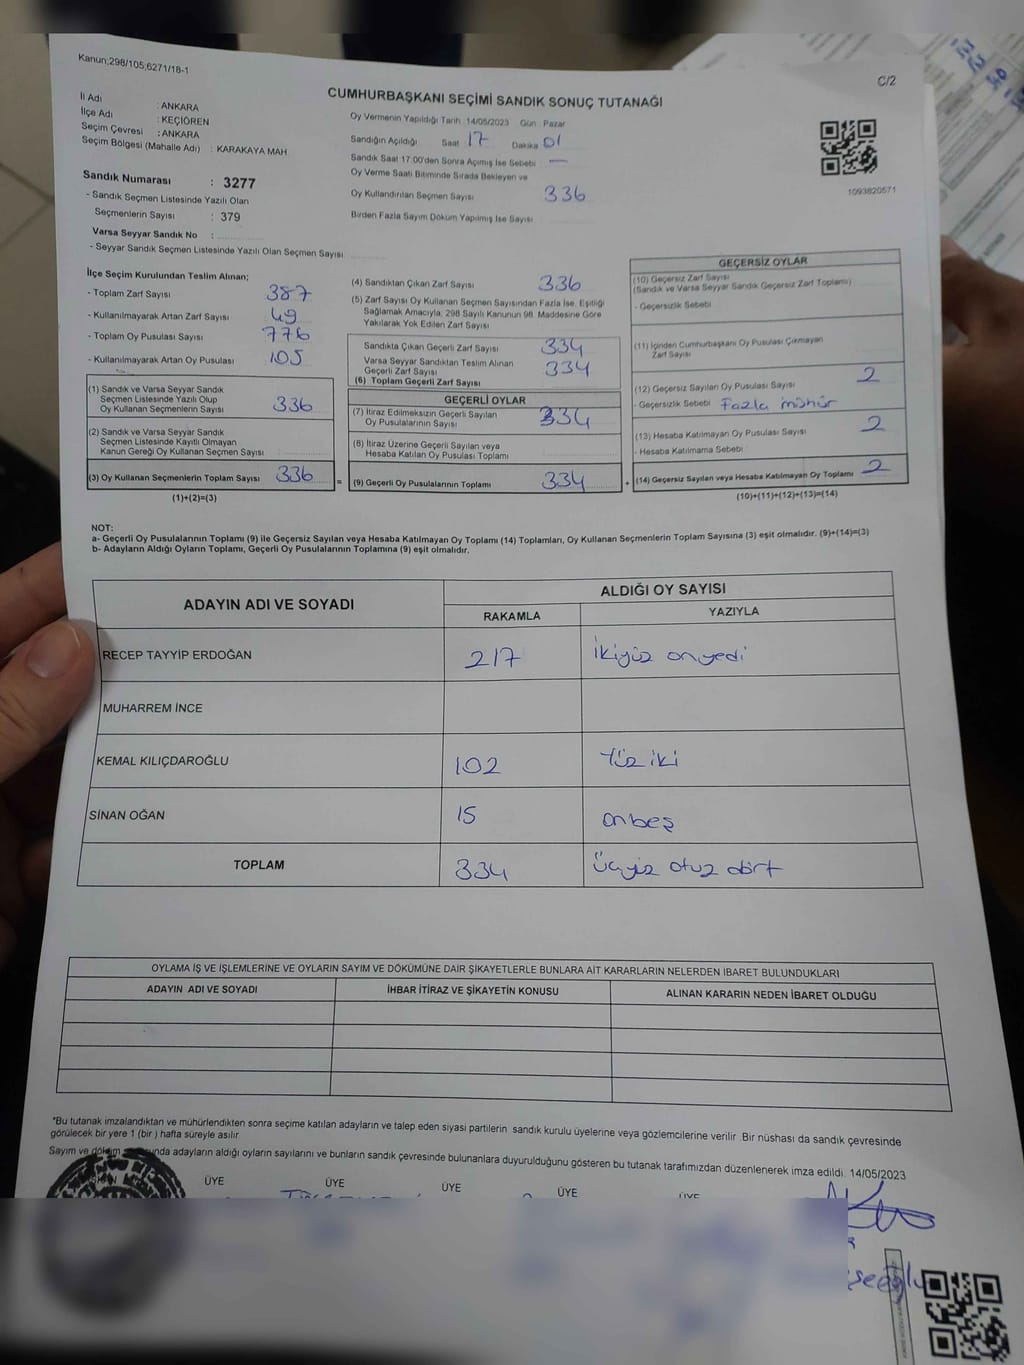 Kanun;298/105;6271/18-1
C/2
CUMHURBAŞKANI SEÇİMİ SANDIK SONUÇ TUTANAĞI
İl Adı : ANKARA
İlçe Adı : KEÇİÖREN
Seçim Çevresi : ANKARA
Seçim Bölgesi (Mahalle Adı) : KARAKAYA MAH.
Sandık Numarası : 3277
- Sandık Seçmen Listesinde Yazılı Olan
Seçmenlerin Sayısı : 379
Varsa Seyyar Sandık No :
- Seyyar Sandık Seçmen Listesinde Yazılı Olan Seçmen Sayısı
Oy Vermenin Yapıldığı Tarih :14/05/2023 Gün : Pazar
Sandığın Açıldığı Saat 17 Dakika 01
Sandık Saat 17.00'den Sonra Açımış İse Sebebi : —
Oy Verme Saati Bitiminde Sırada Bekleyen ve
Oy Kullandırılan Seçmen Sayısı 336
Birden Fazla Sayım Döküm Yapılmış İse Sayısı
1093820571
İlçe Seçim Kurulundan Teslim Alınan;
- Toplam Zarf Sayısı 387
- Kullanılmayarak Artan Zarf Sayısı 49
- Toplam Oy Pusulası Sayısı 776
- Kullanılmayarak Artan Oy Pusulası 105
(1) Sandık ve Varsa Seyyar Sandık
Seçmen Listesinde Yazılı Olup
Oy Kullanan Seçmenlerin Sayısı 336
(2) Sandık ve Varsa Seyyar Sandık
Seçmen Listesinde Kayıtlı Olmayan
Kanun Gereği Oy Kullanan Seçmen Sayısı
(3) Oy Kullanan Seçmenlerin Toplam Sayısı 336
(1)+(2)=(3)
=
(4) Sandıktan Çıkan Zarf Sayısı 336
(5) Zarf Sayısı Oy Kullanan Seçmen Sayısından Fazla İse, Eşitliği
Sağlamak Amacıyla; 298 Sayılı Kanunun 98. Maddesine Göre
Yakılarak Yok Edilen Zarf Sayısı
Sandıkta Çıkan Geçerli Zarf Sayısı 334
Varsa Seyyar Sandıktan Teslim Alınan
Geçerli Zarf Sayısı 334
(6) Toplam Geçerli Zarf Sayısı
GEÇERLİ OYLAR
(7) İtiraz Edilmeksizin Geçerli Sayılan
Oy Pusulalarının Sayısı 334
(8) İtiraz Üzerine Geçerli Sayılan veya
Hesaba Katılan Oy Pusulası Toplamı
(9) Geçerli Oy Pusulalarının Toplamı 334
+
GEÇERSİZ OYLAR
(10) Geçersiz Zarf Sayısı
(Sandık ve Varsa Seyyar Sandık Geçersiz Zarf Toplamı)
- Geçersizlik Sebebi
(11) İçinden Cumhurbaşkanı Oy Pusulası Çıkmayan
Zarf Sayısı
(12) Geçersiz Sayılan Oy Pusulası Sayısı 2
- Geçersizlik Sebebi Fazla mühür
(13) Hesaba Katılmayan Oy Pusulası Sayısı 2
- Hesaba Katılmama Sebebi
(14) Geçersiz Sayılan veya Hesaba Katılmayan Oy Toplamı 2
(10)+(11)+(12)+(13)=(14)
NOT:
a- Geçerli Oy Pusulalarının Toplamı (9) ile Geçersiz Sayılan veya Hesaba Katılmayan Oy Toplamı (14) Toplamları, Oy Kullanan Seçmenlerin Toplam Sayısına (3) eşit olmalıdır. (9)+(14)=(3)
b- Adayların Aldığı Oyların Toplamı, Geçerli Oy Pusulalarının Toplamına (9) eşit olmalıdır.
ADAYIN ADI VE SOYADI ALDIĞI OY SAYISI
RAKAMLA YAZIYLA
RECEP TAYYİP ERDOĞAN 217 İkiyüz onyedi
MUHARREM İNCE
KEMAL KILIÇDAROĞLU 102 Yüz iki
SİNAN OĞAN 15 onbeş
TOPLAM 334 Üçyüz otuz dört
OYLAMA İŞ VE İŞLEMLERİNE VE OYLARIN SAYIM VE DÖKÜMÜNE DAİR ŞİKAYETLERLE BUNLARA AİT KARARLARIN NELERDEN İBARET BULUNDUKLARI
ADAYIN ADI VE SOYADI İHBAR İTİRAZ VE ŞİKAYETİN KONUSU ALINAN KARARIN NEDEN İBARET OLDUĞU
*Bu tutanak imzalandıktan ve mühürlendikten sonra seçime katılan adayların ve talep eden siyasi partilerin sandık kurulu üyelerine veya gözlemcilerine verilir. Bir nüshası da sandık çevresinde
görülecek bir yere 1 (bir ) hafta süreyle asılır
Sayım ve döküm adayların aldığı oyların sayılarını ve bunların sandık çevresinde bulunanlara duyurulduğunu gösteren bu tutanak tarafımızdan düzenlenerek imza edildi. 14/05/2023
ÜYE ÜYE ÜYE ÜYE ÜYE